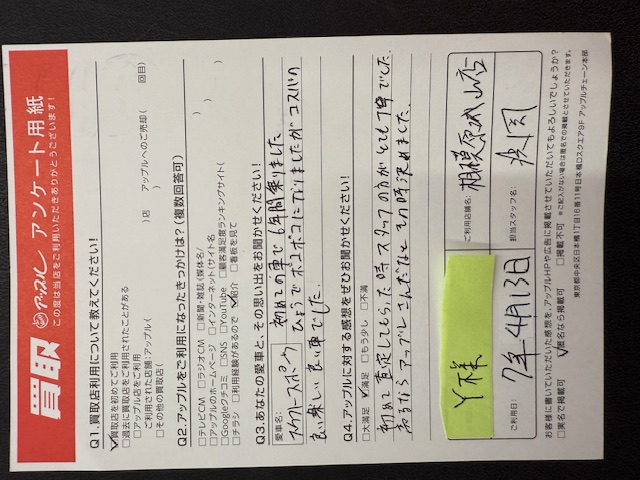 買取 アップル アンケート用紙
この度は当店をご利用いただきありがとうございます!
Q1.買取店利用について教えてください!
☑買取店を初めてご利用
□過去に買取店をご利用されたことがある
□アップル店をご利用
ご利用された店舗:アップル( )店 アップルへのご売却( 回目)
□その他の買取店( )
Q2.アップルをご利用になったきっかけは?(複数回答可)
□テレビCM □ラジオCM □新聞・雑誌(媒体名: )
□アップルのホームページ □インターネット(サイト名: )
□Googleクチコミ □SNS □YouTube □顧客満足度ランキングサイト(
□チラシ □利用経験があるので ☑紹介 □看板を見て
Q3.あなたの愛車と、その思い出をお聞かせください!
愛車名:
初めての車で6年間乗りました。
ひょうでボコボコになりましたが
良い楽しい良い車でした。
Q4.アップルに対する感想をぜひお聞かせください!
□大満足 ☑満足 □もう少し □不満
初めて査定してもらった時スタッフの方がとても丁寧でした。
売るならアップルさんだなとその時決めました。
Y様
ご利用日: 7年4月13日
ご利用店舗名: 相模原城山店
担当スタッフ名:
お客様に書いていただいた感想を、アップルHPや広告に掲載させていただいてもよろしいでしょうか?
□実名で掲載可 ☑匿名なら掲載可 □掲載不可 ※ご記入がない場合は匿名での掲載とさせていただきます。
東京都中央区日本橋1丁目16番11号日本橋口スクエア9F アップルチェーン本部